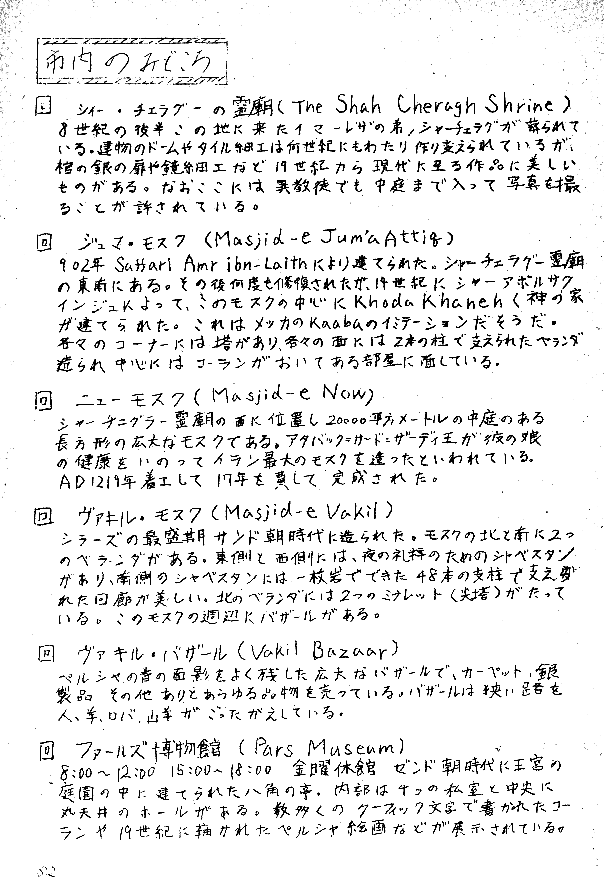 市内のみどころ
シャー・チェラグーの霊廟(The Shah Cheragh Shrine)
8世紀の後半この地に来たイマーレザの弟,シャーチェラグが葬られて
いる。建物のドームやタイル細工は何世紀にもわたり作り変えられているが、
棺の銀の扉や鏡細工など19世紀から現代に至る作品に美しい
ものがある。なおここには異教徒でも中庭まで入って写真を撮
ることが許されている。
ジュマ・モスク (Masjid-e Jum'a Attiq)
902年 Saffari Amr ibn-Laithにより建てられた。シャーチェラグー霊廟
の東南にある。その後何度も修復されたが,14世紀にシャーアボルサク
インジュによって、このモスクの中心に Khoda Khaneh(神の家
が建てられた。これはメッカのKaabaのイミテーションだそうだ。
各々のコーナーには塔があり,各々の面には2本の柱で支えられたベランダ
造られ中心にはコーランがおいてある部屋に面している。
ニューモスク(Masjid-e Now)
シャーチェラグー霊廟の西に位置し20000平方メートルの中庭のある
長方形の広大なモスクである。アタバック=サード=ザーディ王が彼の娘
の健康をいのってイラン最大のモスクを造ったといわれている。
AD1219年着工して17年を費して完成された。
ヴァキル・モスク(Masjid-e Vakil)
シラーズの最盛期サンド朝時代に造られた。モスクの北と南に2つ
のベランダがある。東側と西側には、夜の礼拝のためのシャベスタン
があり,南側のシャベスタンには一枚岩でできた48本の支柱で支え
れた回廊が美しい。北のベランダには2つのミナレット(尖塔)がたって
いる。このモスクの週辺にバザールがある。
ヴァキル・バザール(Vakil Bazaar)
ペルシャの昔の面影をよく残した広大なバザールで、カーペット,銀
製品 その他ありとあらゆる品物を売っている。バザールは狭い路を
人、羊、ロバ、山羊がごったがえしている。
ファールズ博物館 (Pars Museum)
8:00〜12:00 15:00〜18:00 金曜休館 ゼンド朝時代に王宮の
庭園の中に建てられた八角の亭。内部は4つの私室と中央に
丸天井のホールがある。数多くのクーフィック文字で書かれたコー
ランや19世紀に描かれたペルシャ絵画などが展示されている。
82